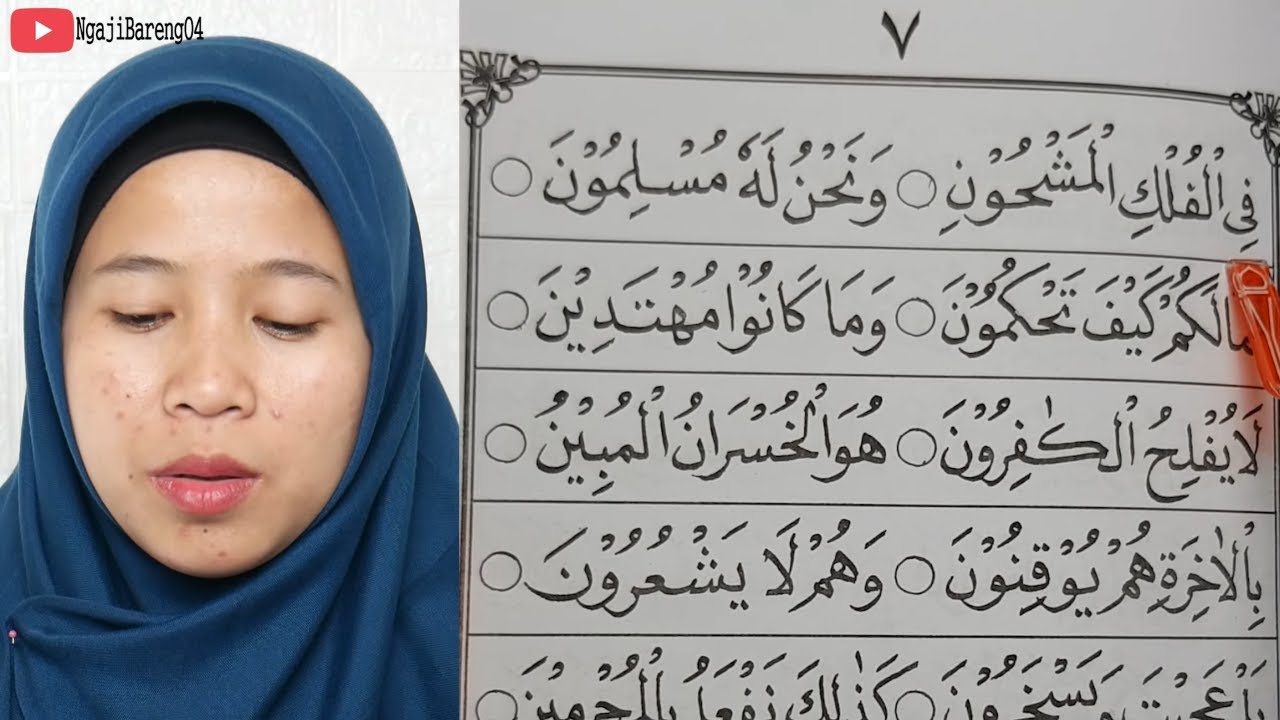 NgajiBareng04
٧
فِى الْفُلْكِ الْمَشْحُوْنِ ○ وَنَحْنُ لَهٗ مُسْلِمُوْنَ ○
مَالَكُمْ كَيْفَ تَحْكُمُوْنَ ○ وَمَا كَانُوْا مُهْتَدِيْنَ ○
لَا يُفْلِحُ الْكٰفِرُوْنَ ○ هُوَ الْخُسْرَانُ الْمُبِيْنُ ○
بِالْاٰخِرَةِ هُمْ يُوْقِنُوْنَ ○ وَهُمْ لَا يَشْعُرُوْنَ ○
بَلْ عَجِبْتَ وَيَسْخَرُوْنَ ○ كَذٰلِكَ نَفْعَلُ بِالْمُجْرِمِيْنَ ○